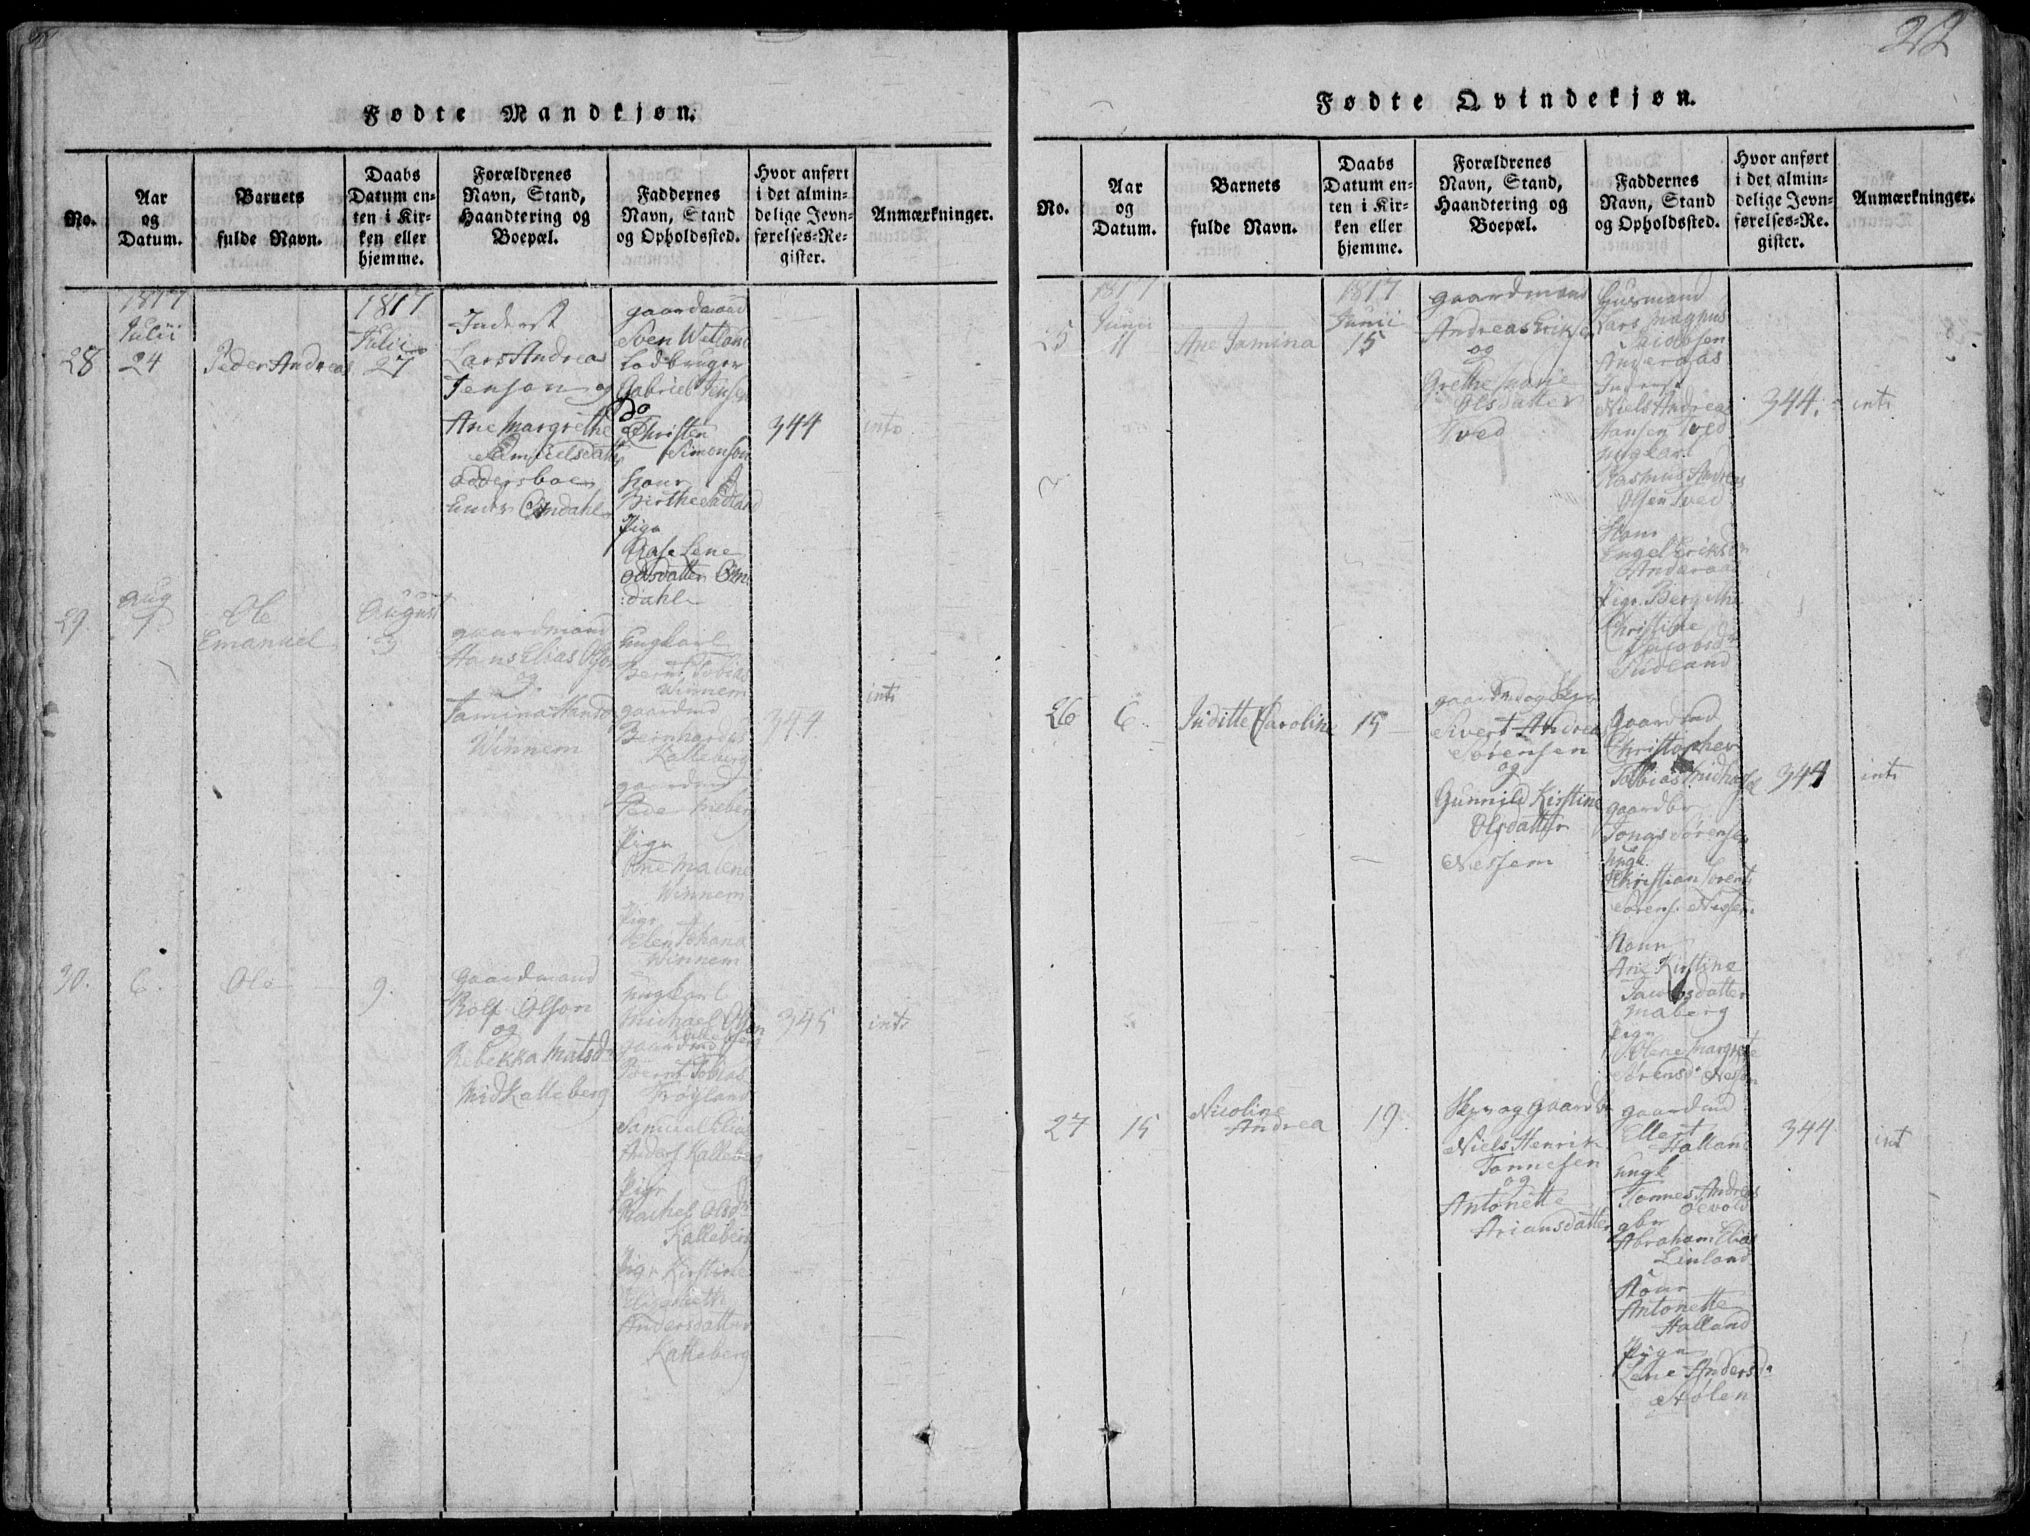 212
Fødte Mandkjøn.
No.
Aar
og
Datum.
Barnets
fulde Navn.
Daabs
Datum en-
ten i Kir-
ken eller
hjemme.
Forældrenes
Navn, Stand,
Haandtering og
Boepæl.
Faddernes
Navn, Stand
og Opholdssted.
Hvor anført
i det almin-
delige Jevn-
førelses-Re-
gister.
Anmærkninger.
28
1817
Julii
24
Peder Andreas
1817
Julii
27
Inderst
Lars Andreas
Jenson og
Ane Margrethe
Samuelsdatter
Oddersboe
Omdahl
gaardmand
Sven
Lodbruger
Gabriel Jensen
Do
Christen
Simonson
Konr
Birthe
Pige
Lene
Odsdatter Om
dahl
344
intr
29.
Aug
1.
Ole
Emanuel
August
3
gaardmand
Hans Elias Olson
og
Jamina Hansd
Winnem
Ungkarl
Bernt Tobias
Winnem
gaardmd
Bernhardus
Kalleberg
gaardmd
Peder
Pige
Ane Malene
Winnem
Pige
Elen Johana
Winnem
344
intr
30.
6.
Ole
9.
gaardmand
Rolf Olson
og
Rebekka Matsd
Mid Kalleberg
ungkarl
Michael Olson
Kalleberg
gaardmd
Bernt Tobias
Frøyland
Samuel Elias
Anders Kalleberg
Pige
Rachel Olsd
Kalleberg
Pige Kirstine
Elisabeth
Andersdatter
Kalleberg
345
intr
Fødte Qvindekjøn.
No.
Aar
og
Datum.
Barnets
fulde Navn.
Daabs
Datum en-
ten i Kir-
ken eller
hjemme.
Forældrenes
Navn, Stand,
Haandtering og
Boepæl.
Faddernes
Navn, Stand
og Opholdssted.
Hvor anført
i det almin-
delige Jevn-
førelses-Re-
gister.
Anmærkninger.
25
1817
Junii
11
Ane Jamina
1817
Junii
15
gaardmand
Andreas Eriksen
og
Grethe Marie
Olsdatter
Tved
Lars Magnus
Jacobsen
Anderaas
Inderst
Niels Andreas
Hansen Tved
ungkarl
Rasmus Andreas
Olsen Tved
Kone
Engel Eriksd
Anderaas
Pige Bergithe
Christine
Jacobsdr
344.
intr
26
6.
Juditte Caroline
15
Sivert Andreas
Sørensen
og
Gunnild Kirstine
Olsdatter
Nessem
Gaardmd
Christopher
Tobias Midhassel
gaardbr
Jonas Sørensen
ungk
Christian Lorents
Sørens. Nessem
Konen
Ane Kirstine
Jacobsdatter
Maberg
Pige
Olene Margrete
Sørensd. Nessem
344
intr
27
15
Nicoline
Andrea
19.
Skyr og gaardbr
Niels Henrik
Tønnesen
og
Antonette
Ariansdatter
gaardmd
Ellert
Halland
ungk
Tønnes Andreas
gbr
Abraham Elias
Linland
Konr
Antonette
Halland
Pige
Lene Andersd
Holen
344
int